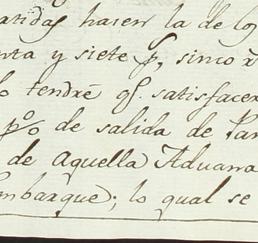 atidas hacen la de los
nta y siete p, sinco r
lo tendré q.e satisfacer
p.o de salida de Par
de aquella Aduana
mbarque; lo qual se